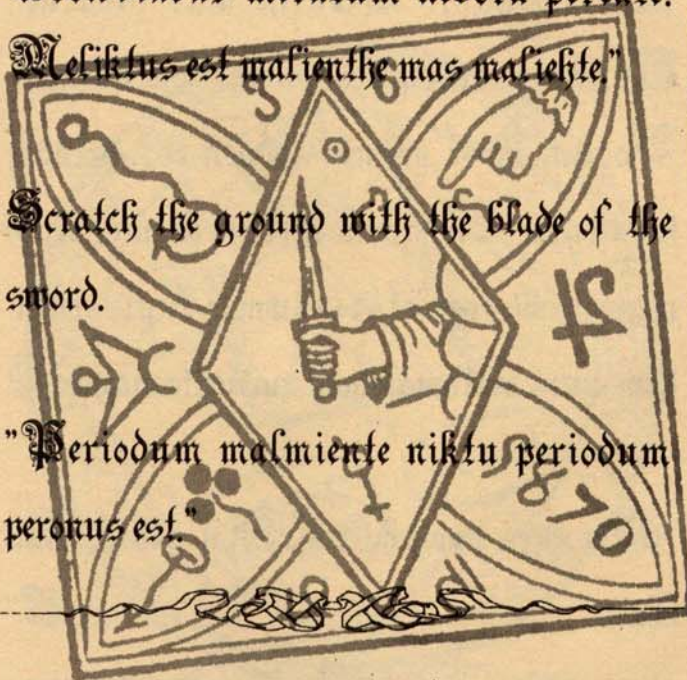 Meliktus est malienthe mas maliehte."
Scratch the ground with the blade of the
sword.
"Periodum malmiente niktu periodum
peronus est."